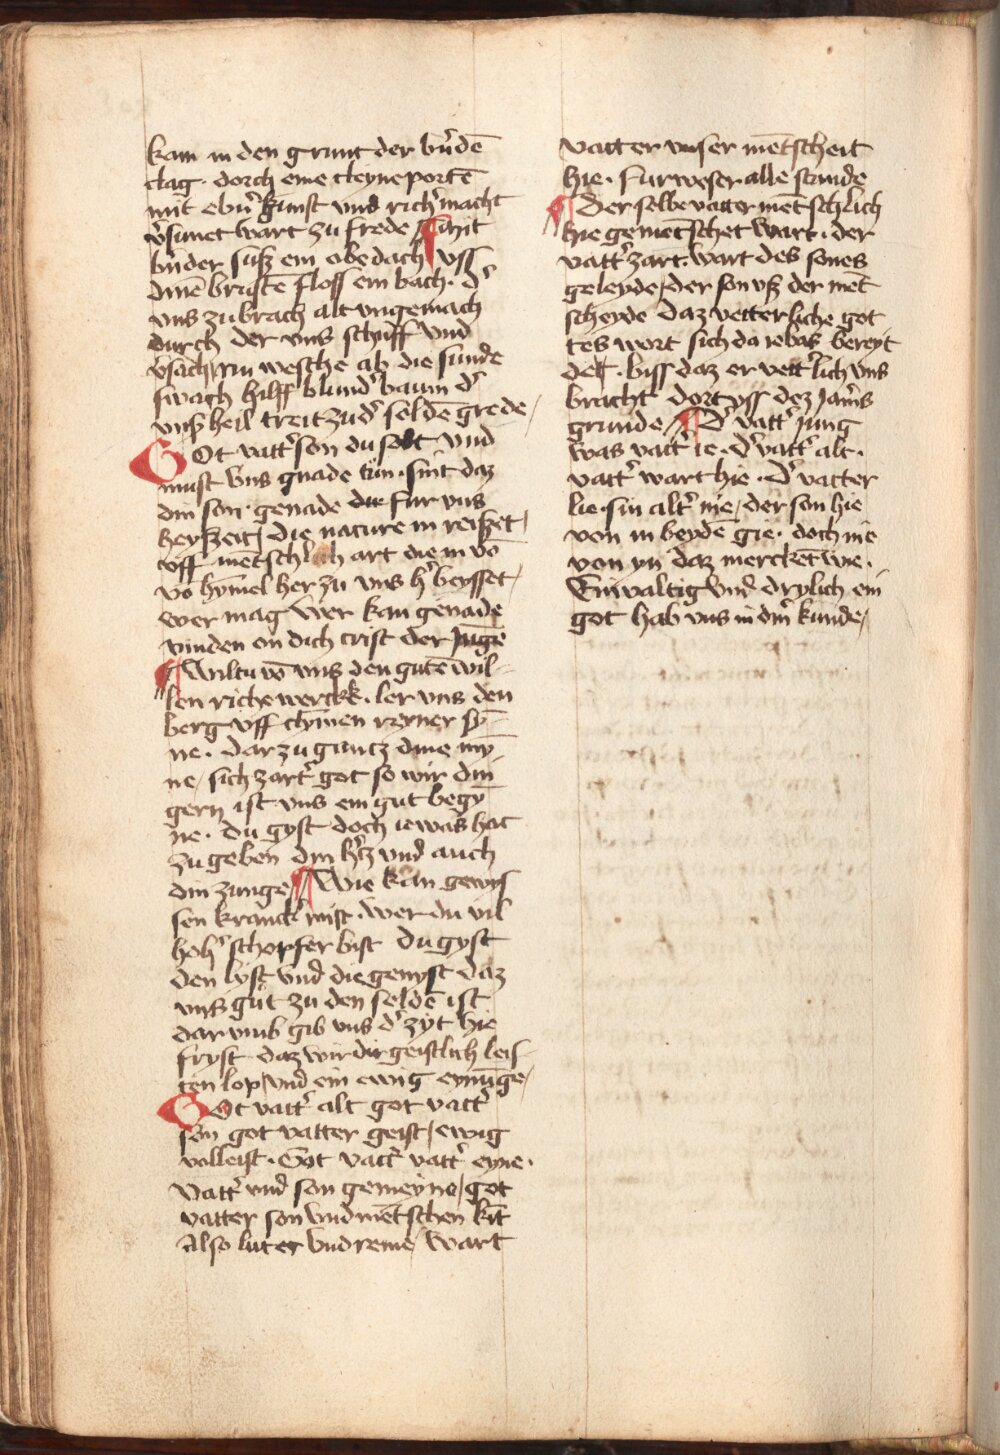 kam in den grunt der vn̄dē
clag · dorch eine cleyne portē
mit ebn̄ kunst vnd rich͛ macht
v͛sunet wart zu frede / mit
bn̄der suſz ein obedach vff
dinē bruſtē floſſ ein bach · d͛
vns zu brach alt vngemach
durch der vns schuff vnd
v͛sach rin wesche ab die sunde
swach hilff blund͛ baum d͛
vnſz heil treit zu d͛ seldē grede /
Got vatt͛ son du solt vnd
must vns gnade tun · sint daz
din son · genade fur vns
heyszeit / die nature in reiſzet /
vff mētschlich art die in vō
vō hȳmel her zu vns h͛ beysset /
wer mag wer kan genade
vinden on dich crist der Jūge
¶ Wiltu vō vns den gutē wil-
len riche werckk · ler vns den
berg vff clȳmen reyner sȳ-
ne · dar zu gantz dine mȳ-
ne / sich zart͛ got so wir din
gern ist vns ein gut begȳ
ne · du gyst doch iewas hat
zu geben din h͛tz vnd auch
din zunge / ¶ Wie kan gewiſ
sen kranck͛ mist · wer du vil
hoh͛ schopfer bist du gyst
den lyst vnd die genyst daz
vnſz gut zu den seldē ist
dar vmb gib vns d͛ zyt hie
fryst daz wir dir geistlich leis-
ten lop / vnd ein ewig eynūge /
Got vatt͛ alt got vatt͛
son got vatter geist / ewig
volleist · Got vatt͛ vatt͛ eyne ·
vatt͛ vnd son gemeyne / got
vatter son vnd mētschen kīt
Also luter vnd reine / wart
vatter vnser mētscheit
hie · fur weser alle stunde
¶ Der selbe vatter mētschlich
hie gemētschet wart · der
vatt͛ zart · wart des sones
geleyde / der son vſz der mēt
scheyde daz vetterliche got
tes wort sich da iebas bereyt
det · biss daz er vett͛lich vns
bracht dort vss dez Jam͛s
grunde / ¶ D͛ vatt͛ Jung
was vatt͛ ie · d͛ vatt͛ alt ·
vatt͛ wart hie · D͛ vatter
lie sin alt͛ nie / der son hie
von in beydē gie · doch nie
von yn daz merckēt wie ·
Einvaltig vnd drylich ein
got hab vns in din͛ kunde /